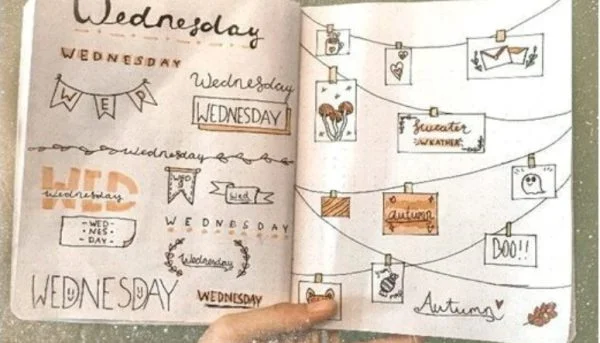 Wednesday
WEDNESDAY
Wednesday
WED
WEDNESDAY
Wednesday
WED
Wednesday
WED
Wed
-WED-
-NES-
DAY-
WEDNESDAY
Wednesday
WEDNESDAY
WEDNESDAY
Sweater
WEATHER
autumn
BOO!!
Autumn